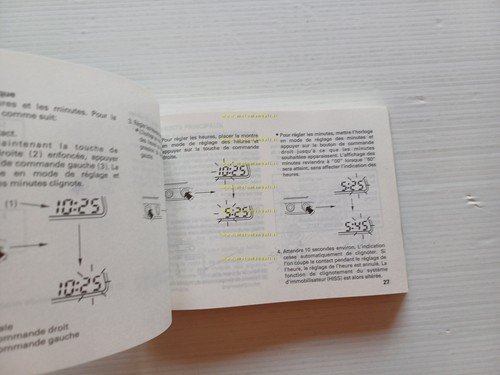 que
res et les minutes. Pour le
comme suit:
tact.
aintenant la touche de
droite (2) enfoncée, appuyer
de commande gauche (3). Le
e en mode de réglage et
s minutes clignote.
(1)
10:25
10:25
ale
ommande droit
ommande gauche
3.
Pour régler les heures, placer la montre
en mode de réglage des heures et
appuyer sur la touche de commande
droite.
10:25
5:25
www.motomanuali.it
• Pour régler les minutes, mettre l'horloge
en mode de réglage des minutes et
appuyer sur le bouton de commande
droit jusqu'à ce que les minutes
souhaitées apparaissent. L'affichage des
minutes reviendra à "00" lorsque "60"
sera atteint, sans affecter l'indication des
heures.
5:25
5:45
4. Attendre 10 secondes environ. L'indication
cesse automatiquement de clignoter. Si
l'on coupe le contact pendant le réglage de
l'heure, le réglage de l'heure est annulé. La
fonction de clignotement du système
d'immobilisateur (HISS) est alors altérée.
27